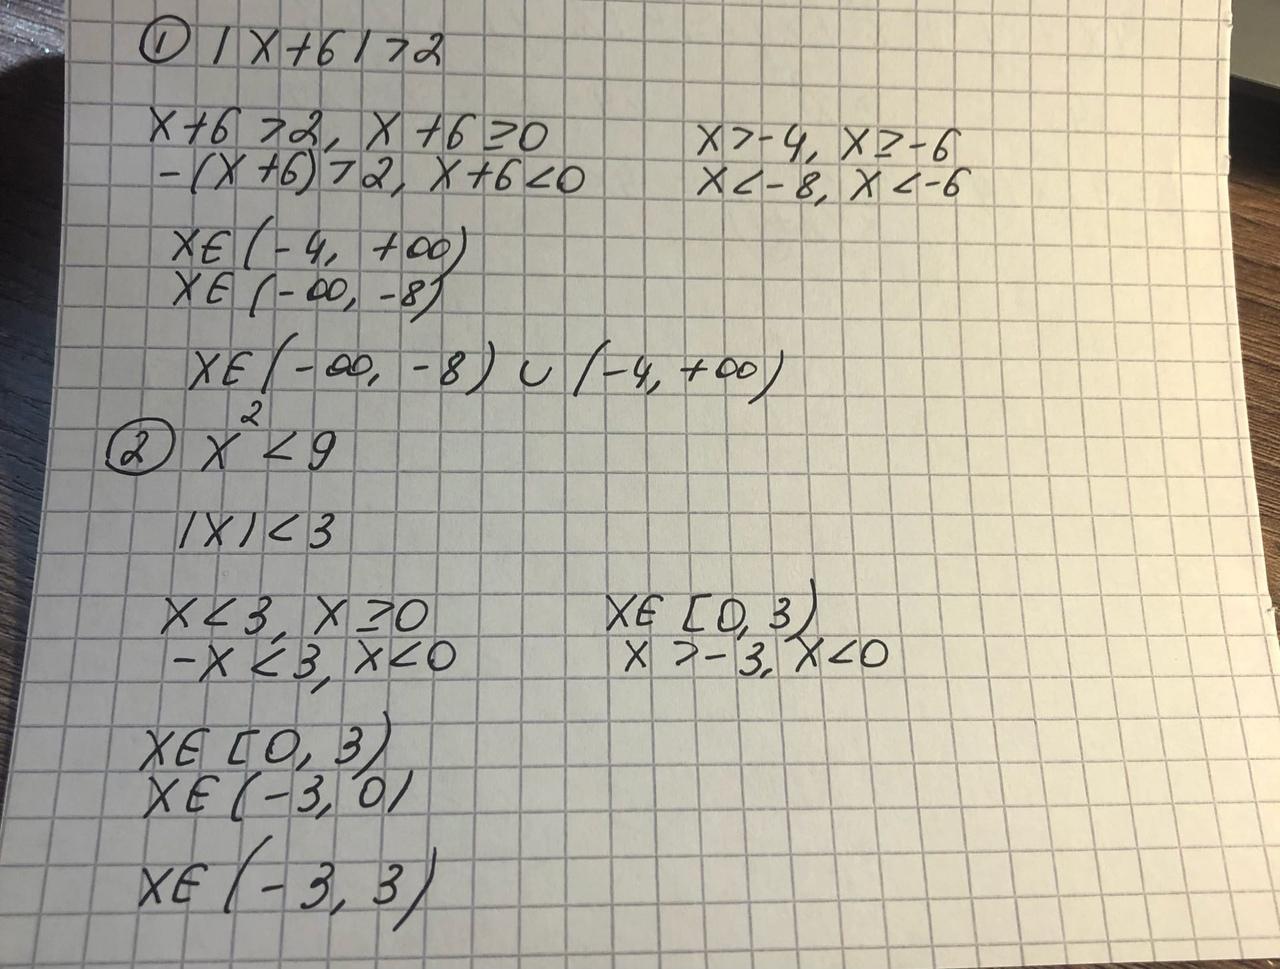 ① |x+6|>2
x+6>2, x+6≥0 x>-4, x≥-6
-(x+6)>2, x+6<0 x<-8, x<-6
x∈(-4, +∞)
x∈(-∞, -8)
x∈(-∞, -8) ∪ (-4, +∞)
② x²<9
|x|<3
x<3, x≥0 x∈[0, 3)
-x<3, x<0 x>-3, x<0
x∈[0, 3)
x∈(-3, 0)
x∈(-3, 3)